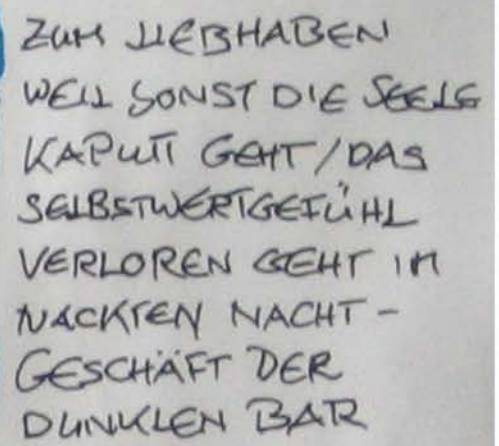 ZUM LIEBHABEN
WEIL SONST DIE SEELE
KAPUTT GEHT/DAS
SELBSTWERTGEFÜHL
VERLOREN GEHT IM
NACKTEN NACHT-
GESCHÄFT DER
DUNKLEN BAR